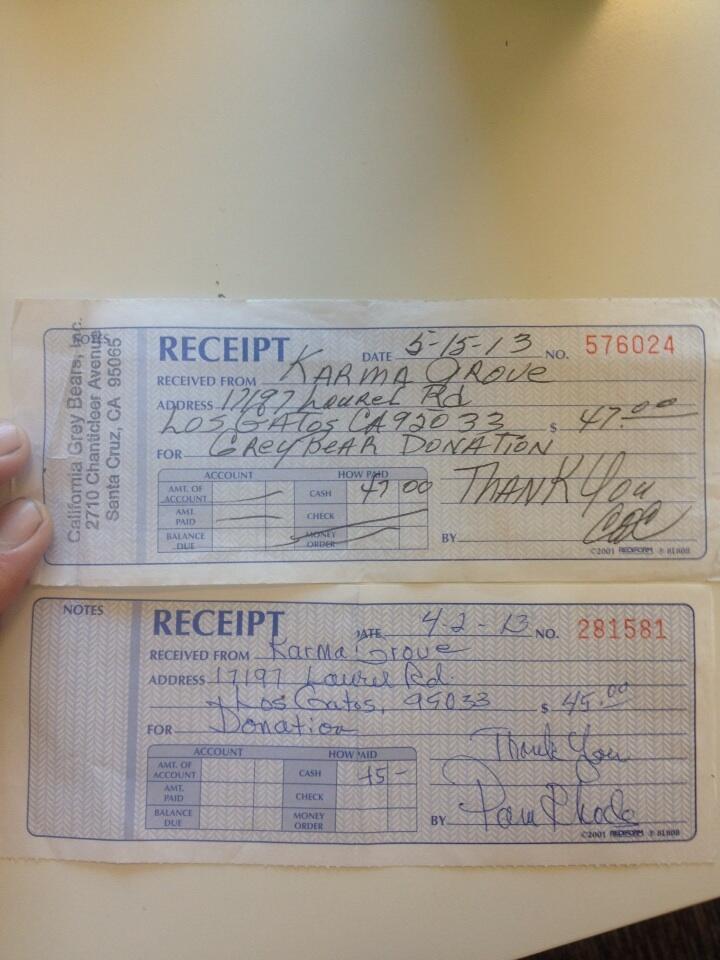 California Grey Bears, Inc.
2710 Chanticleer Avenue
Santa Cruz, CA 95065
NOTES
RECEIPT DATE 5-15-13 NO. 576024
RECEIVED FROM KARMA GROVE
ADDRESS 17197 Laurel Rd
LOS GATOS CA 92033 $ 47.00
FOR GREY BEAR DONATION
ACCOUNT HOW PAID
AMT. OF ACCOUNT CASH 47 00
THANK You
AMT. PAID CHECK
BALANCE DUE MONEY ORDER BY
©2001 REDIFORM ® 8L808
NOTES
RECEIPT DATE 4-2-13 NO. 281581
RECEIVED FROM Karma Grove
ADDRESS 17197 Laurel Rd.
Los Gatos, 95033 $ 45.00
FOR Donation
ACCOUNT HOW PAID
Thank You
AMT. OF ACCOUNT CASH 45-
AMT. PAID CHECK
BALANCE DUE MONEY ORDER BY Pam Rhode
©2001 REDIFORM ® 8L808